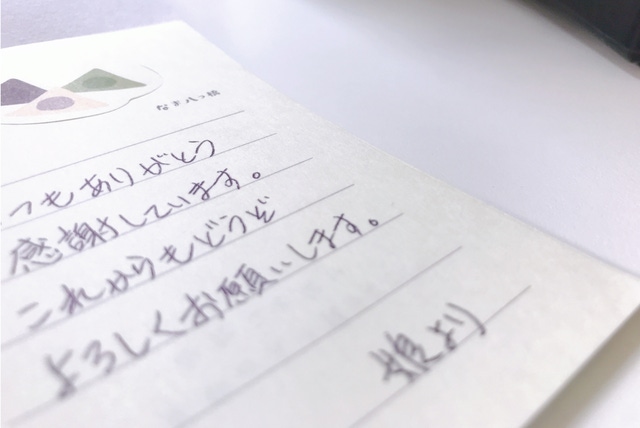 なま八つ橋
つもありがとう
感謝しています。
これからもどうぞ
よろしくお願いします。
娘より